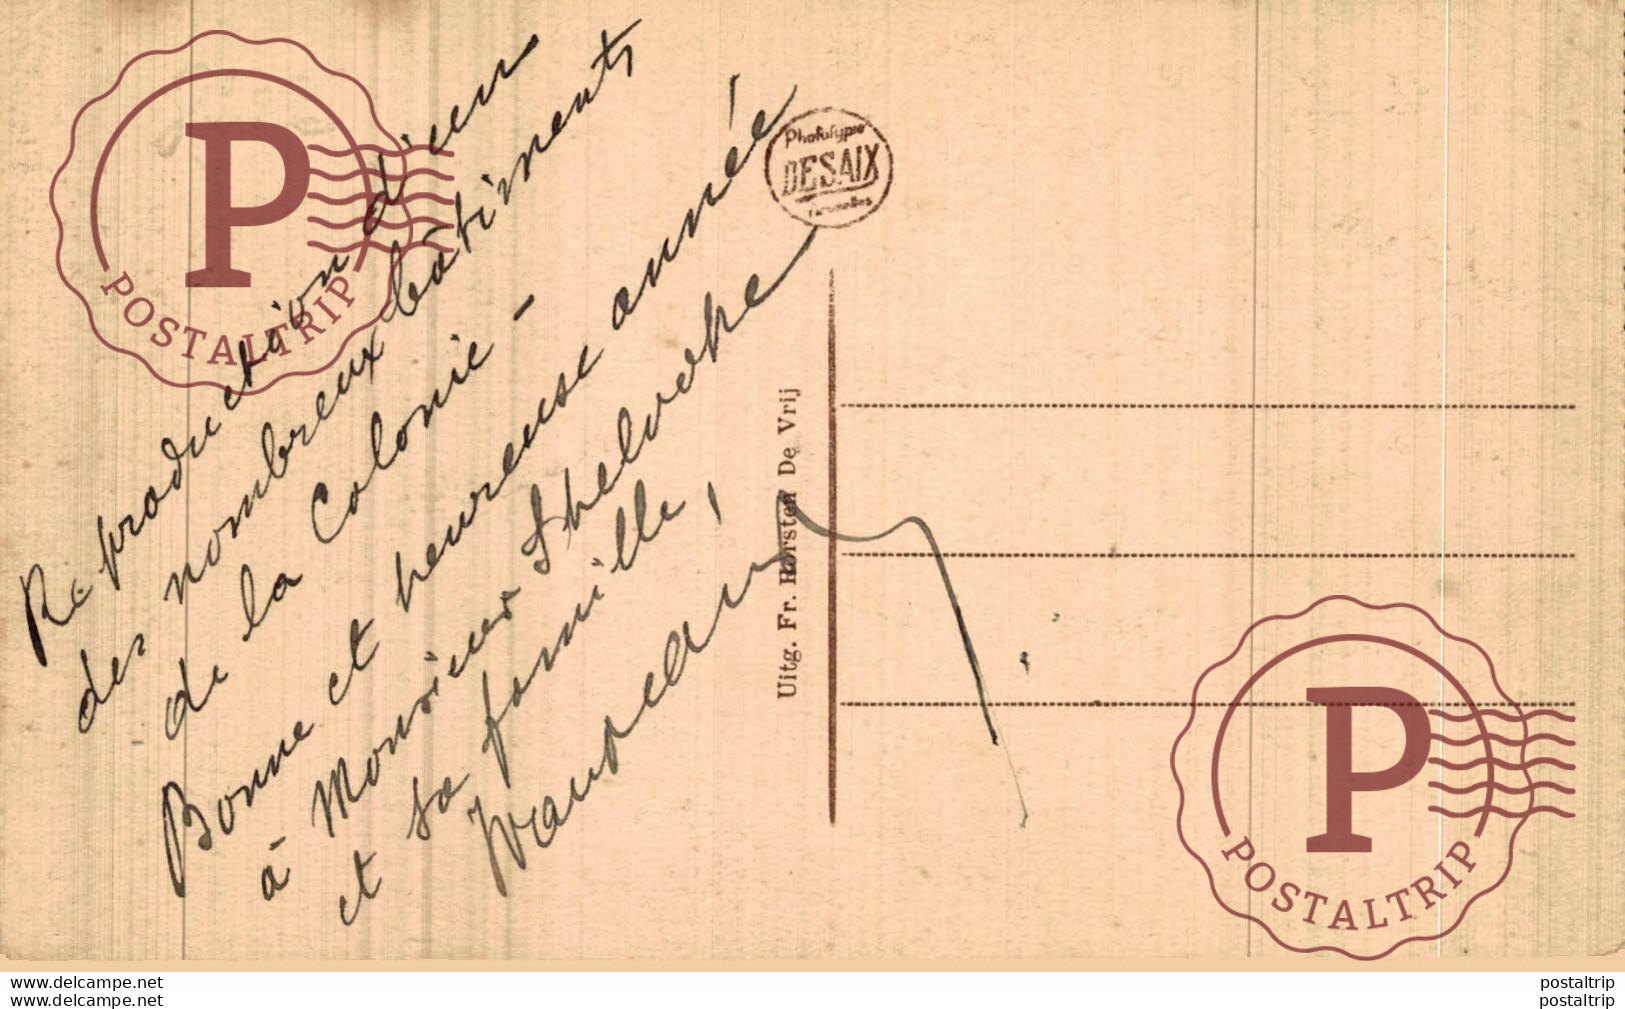 Reproduction d'un
des nombreux bâtiments
de la Colonie -
Bonne et heureuse année
à Monsieur Shelvoke
et sa famille,
Phototypie
DESAIX
Bruxelles
Uitg. Fr. Horsten De Vrij
P
POSTALTRIP
P
POSTALTRIP
www.delcampe.net
www.delcampe.net
postaltrip
postaltrip